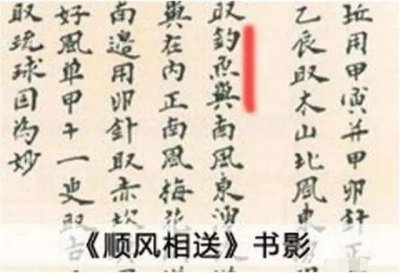 坵用甲寅并甲卯針正
乙辰取木山北風東
取釣魚與南風東湧
與在内正南風梅花
南邊用卯針取赤坎
好風單甲十一更取古
取琉球国為妙
《顺风相送》书影